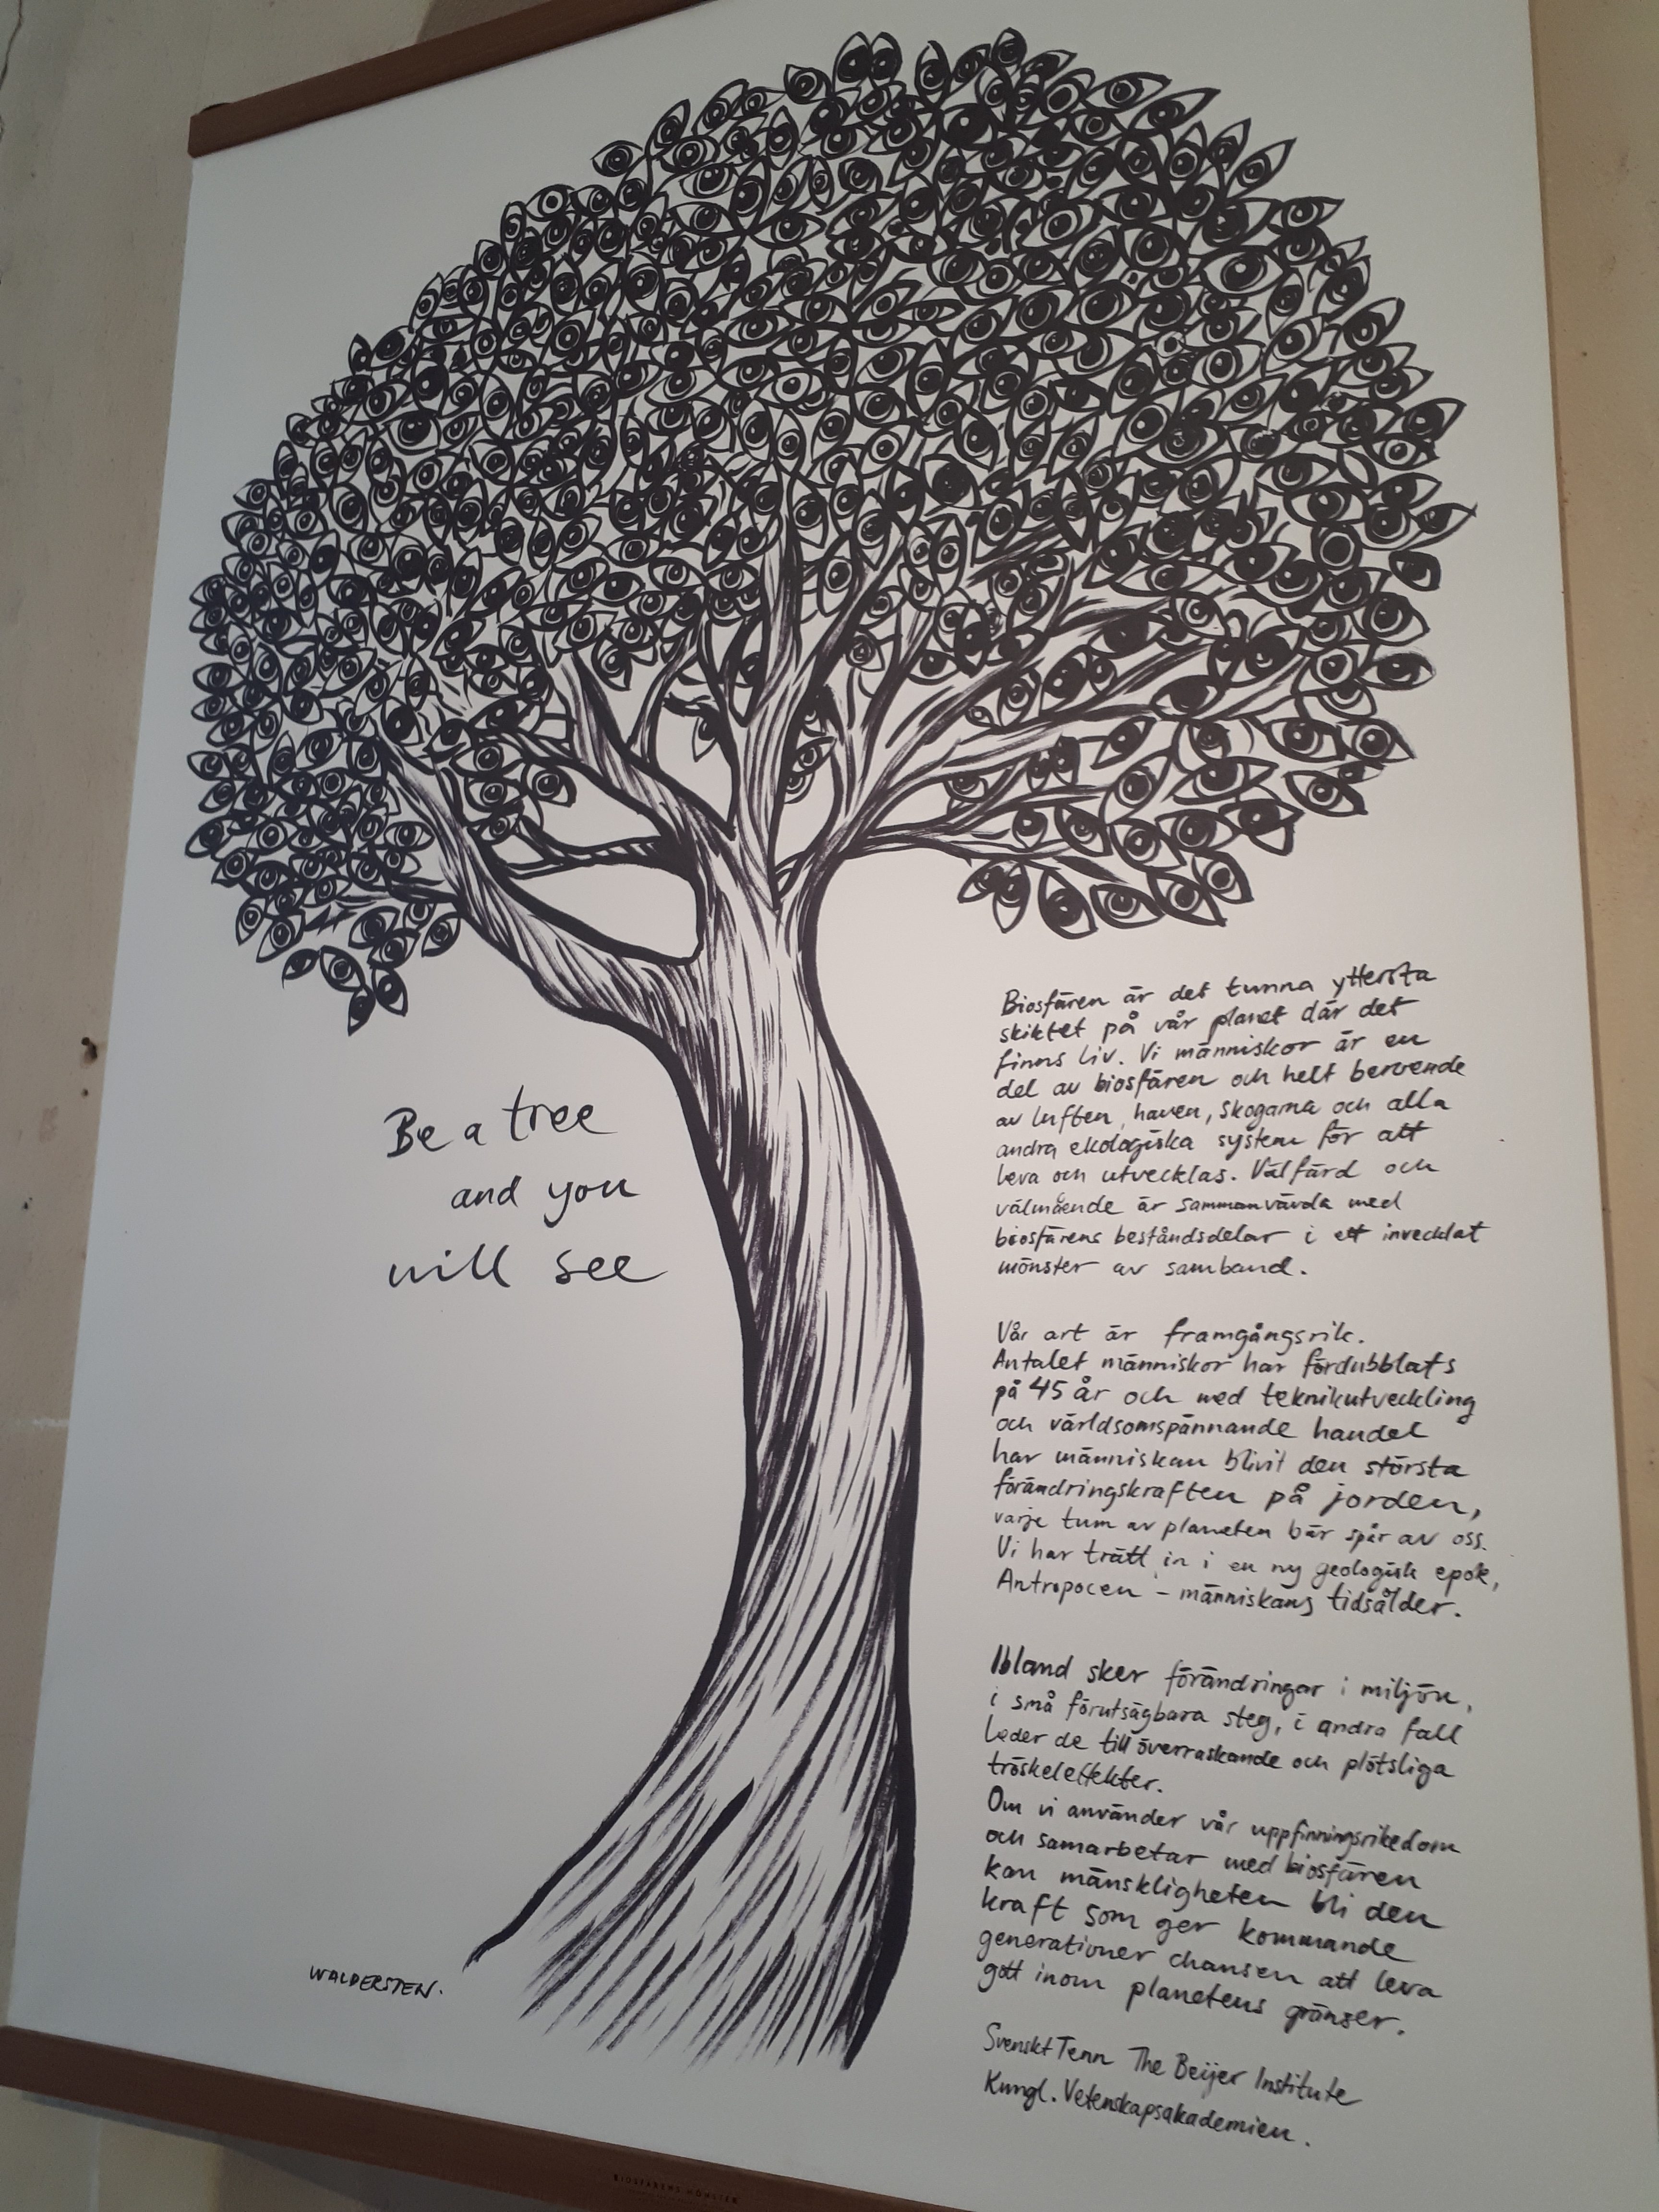 Be a tree
and you
will see
WALDERSTEN.
Biosfären är det tunna yttersta
skiktet på vår planet där det
finns liv. Vi människor är en
del av biosfären och helt beroende
av luften, haven, skogarna och alla
andra ekologiska system för att
leva och utvecklas. Välfärd och
välmående är sammanvävda med
biosfärens beståndsdelar i ett invecklat
mönster av samband.
Vår art är framgångsrik.
Antalet människor har fördubblats
på 45 år och med teknikutveckling
och världsomspännande handel
har människan blivit den största
förändringskraften på jorden,
varje tum av planeten bär spår av oss.
Vi har trätt in i en ny geologisk epok,
Antropocen - människans tidsålder.
Ibland sker förändringar i miljön,
i små förutsägbara steg, i andra fall
leder de till överraskande och plötsliga
tröskeleffekter.
Om vi använder vår uppfinningsrikedom
och samarbetar med biosfären
kan mänskligheten bli den
kraft som ger kommande
generationer chansen att leva
gott inom planetens gränser.
Svenskt Tenn The Beijer Institute
Kungl. Vetenskapsakademien.
BIOSFÄRENS MÖNSTER